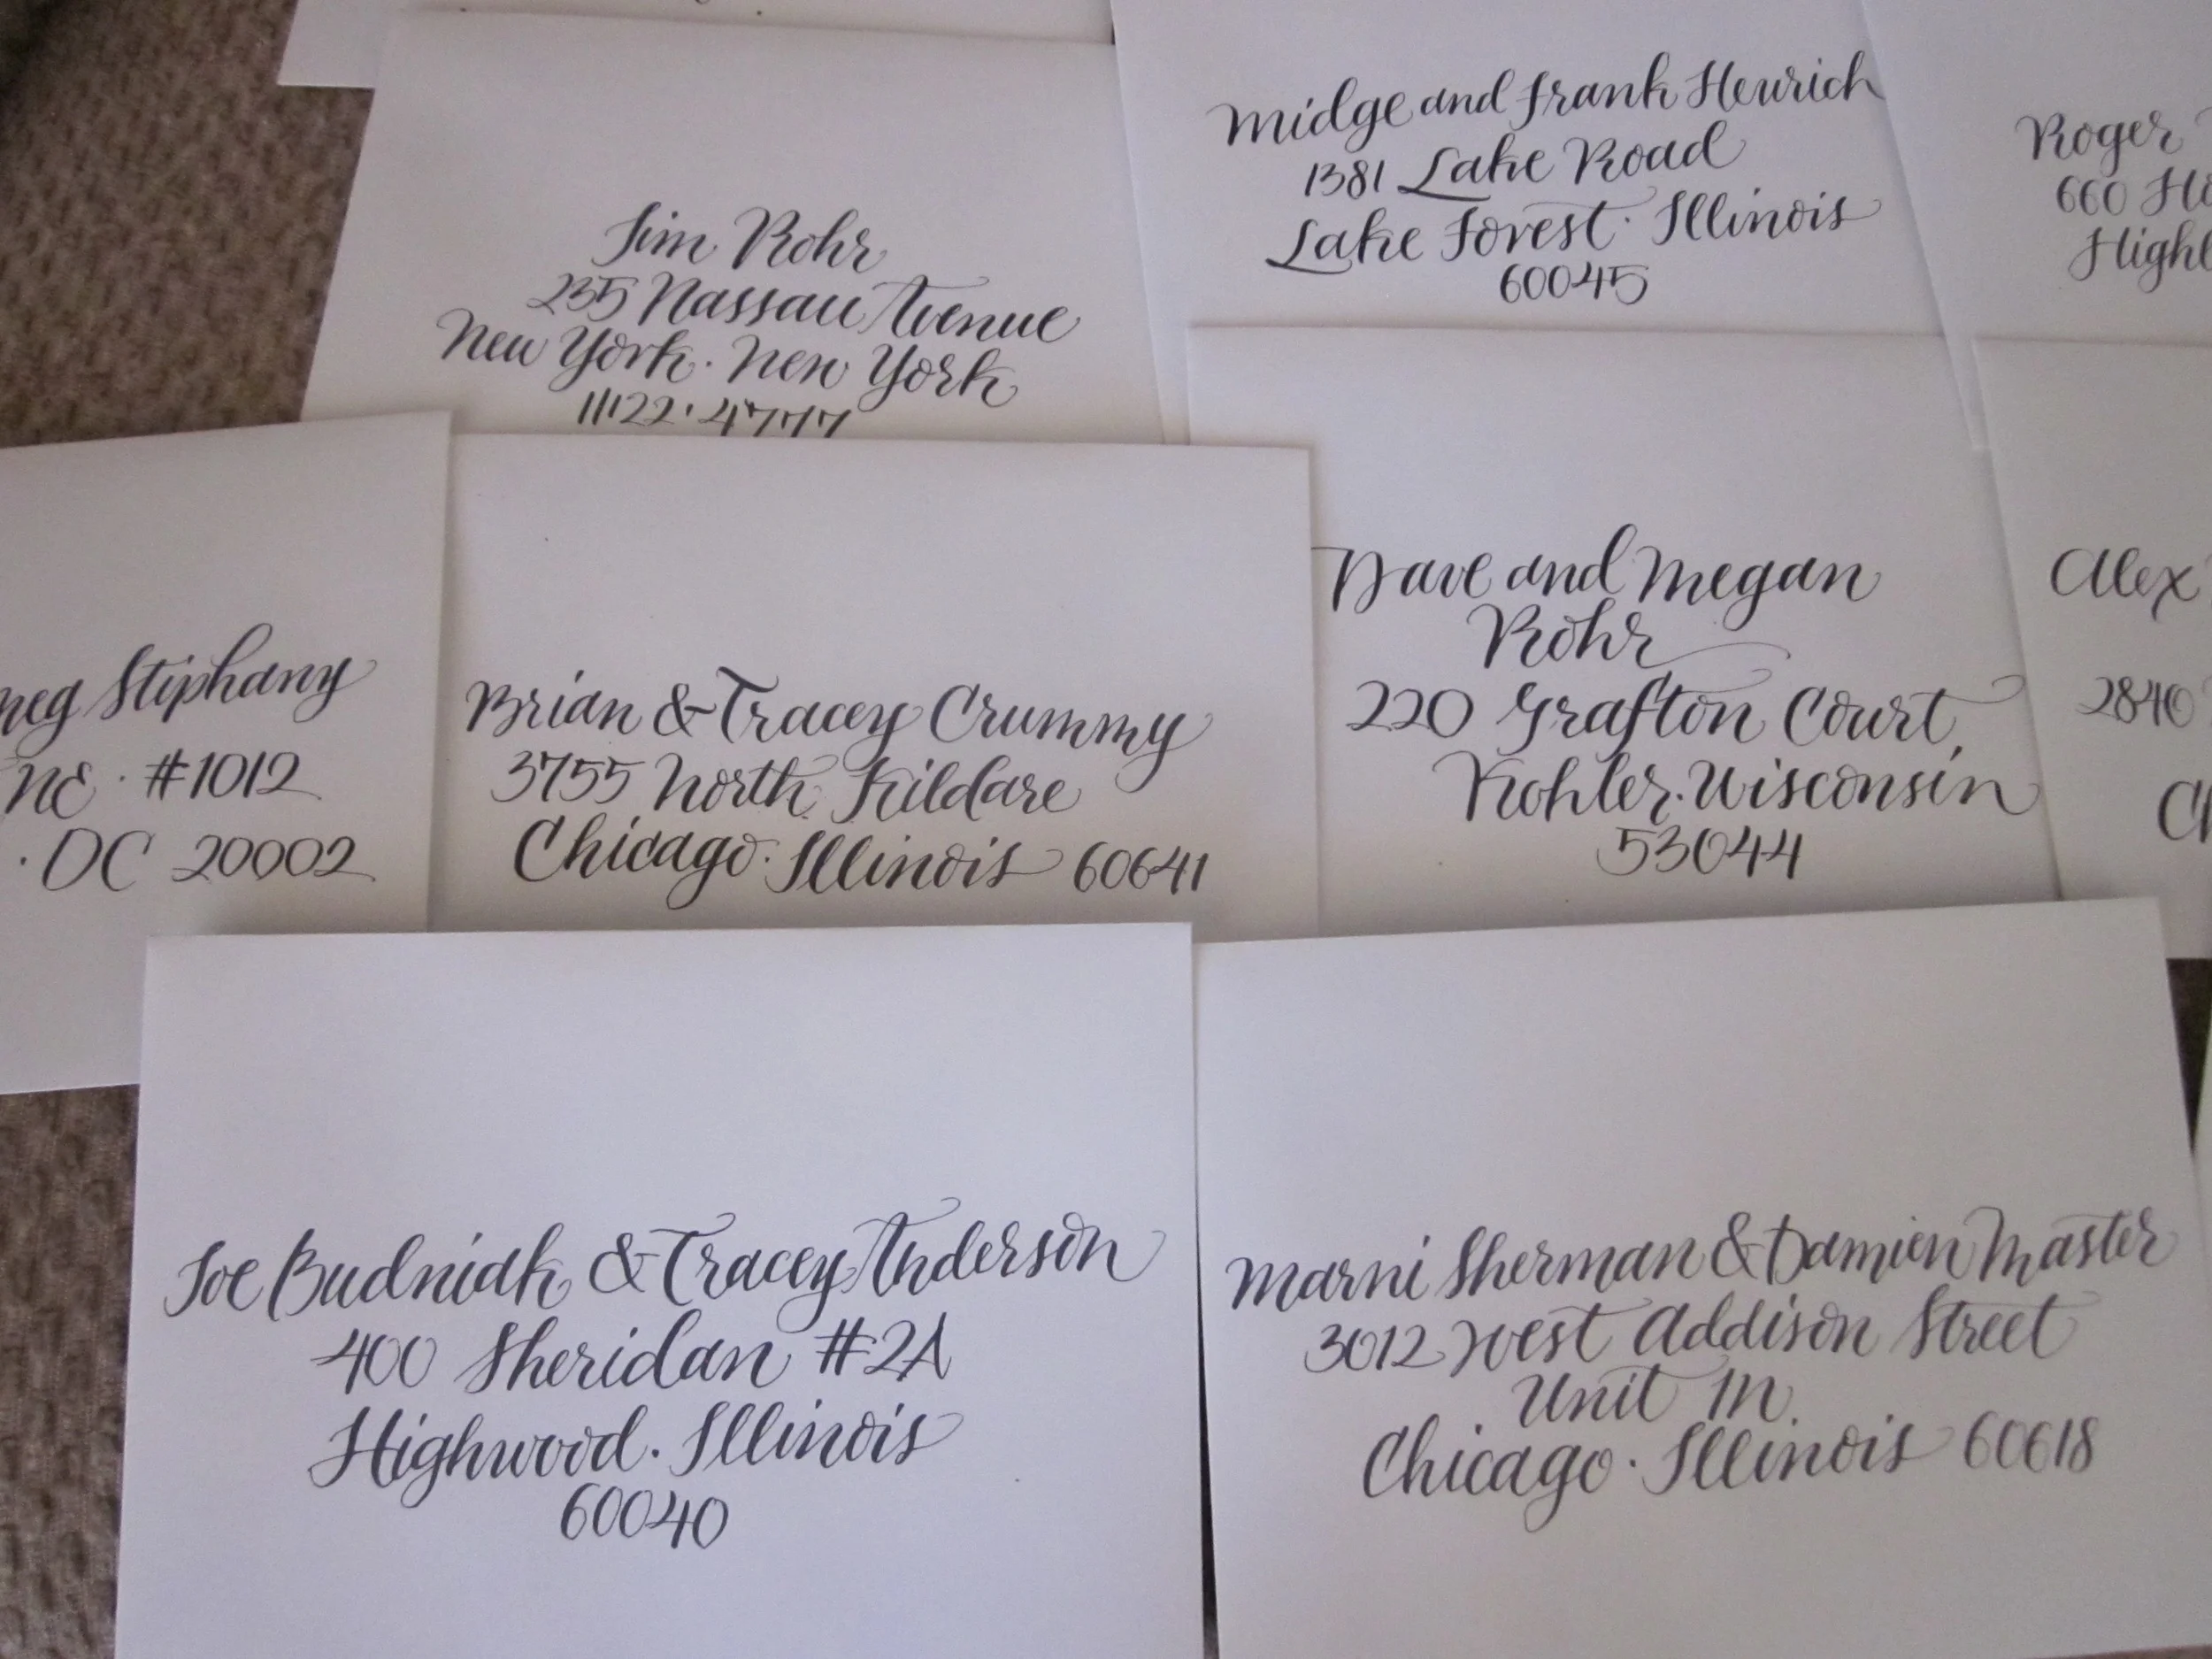 Jim Rohr
235 Nassau Avenue
New York · New York
11122 · 4777
Midge and Frank Heurich
1381 Lake Road
Lake Forest · Illinois
60045
Roger
660
Highl
meg Stiphany
NE · #1012
· DC 20002
Brian & Tracey Crummy
3755 North Kildare
Chicago · Illinois 60641
Dave and Megan
Rohr
220 Grafton Court,
Kohler · Wisconsin
53044
Alex
2840
Ch
Joe Budniak & Tracey Anderson
400 Sheridan #2A
Highwood · Illinois
60040
Marni Sherman & Damien Master
3012 West Addison Street
Unit 1N
Chicago · Illinois 60618